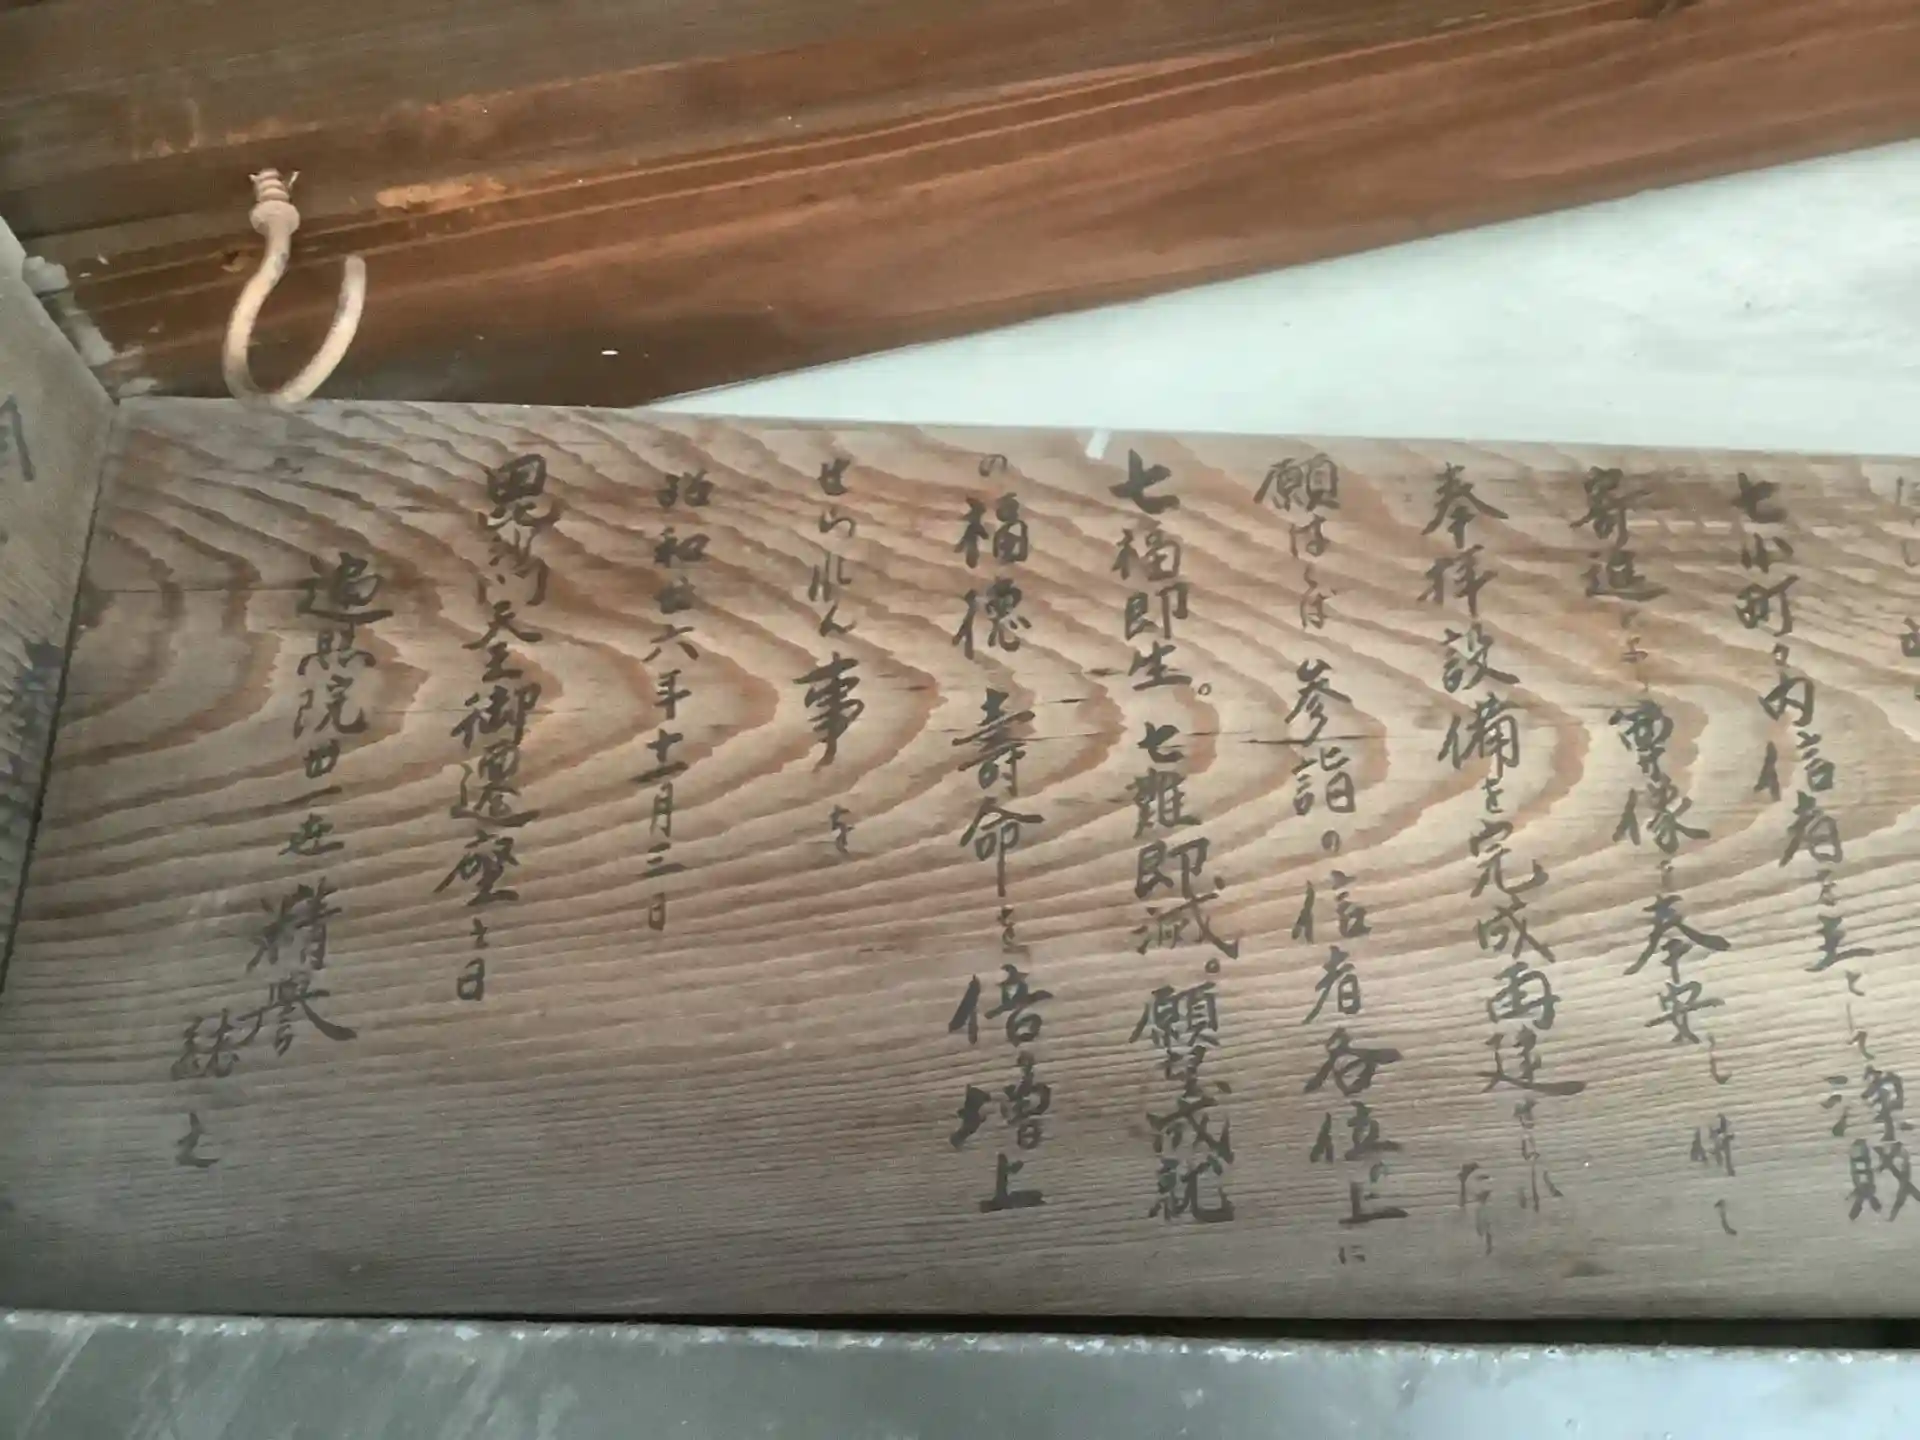 七小町々内信者を主として浄財
寄進により尊像を奉安し併て
奉拝設備を完成再建せられたり
願はくば参詣の信者各位の上に
七福即生。七難即滅。願望成就
の福徳壽命を倍々増上
せられん事を
昭和廿六年十一月三日
毘沙門天王御遷座之日
遍照院丗一世精譽
誌之